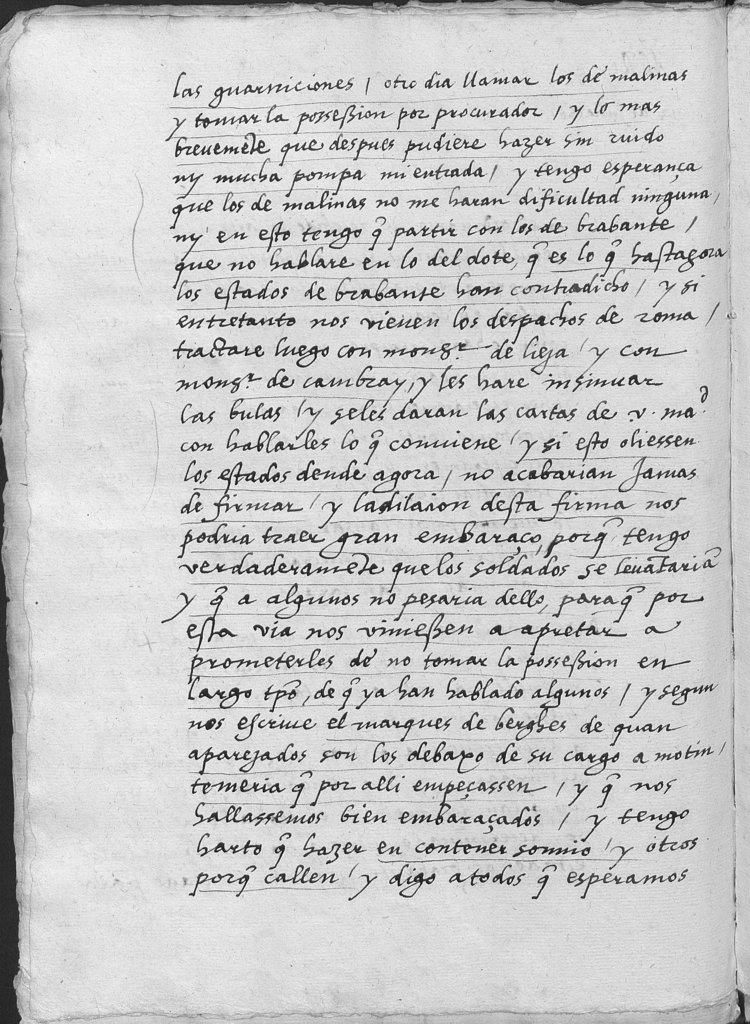 las guarniciones / otro dia llamar los de malinas
y tomar la possession por procurador / y lo mas
brevemẽte que despues pudiere hazer sin ruido
ny mucha pompa mi entrada / y tengo esperança
que los de malinas no me haran dificultad ninguna,
ny en esto tengo q̃ partir con los de brabante /
que no hablare en lo del dote, q̃ es lo q̃ hastagora
los estados de brabante han contradicho / y si
entretanto nos vienen los despachos de roma /
tractare luego con mons.r de lieja / y con
mons.r de cambray, y les hare insinuar
las bulas / y seles daran las cartas de .v. ma.d
con hablarles lo q̃ conviene / y si esto oliessen
los estados dende agora / no acabarian Jamas
de firmar / y la dilaion desta firma nos
podria traer gran embaraço, porq̃ tengo
verdaderamẽte que los soldados se levãtariã
y q̃ a algunos no pesaria dello, paraq̃ por
esta via nos viniessen a apretar a
prometerles de no tomar la possession en
largo tpõ, de q̃ ya han hablado algunos / y segun
nos escrive el marques de berghes de quan
aparejados son los debaxo de su cargo a motin /
temeria q̃ por alli empeçassen / y q̃ nos
hallassemos bien embaraçados / y tengo
harto q̃ hazer en contener sonnio / y otros
porq̃ callen / y digo a todos q̃ esperamos